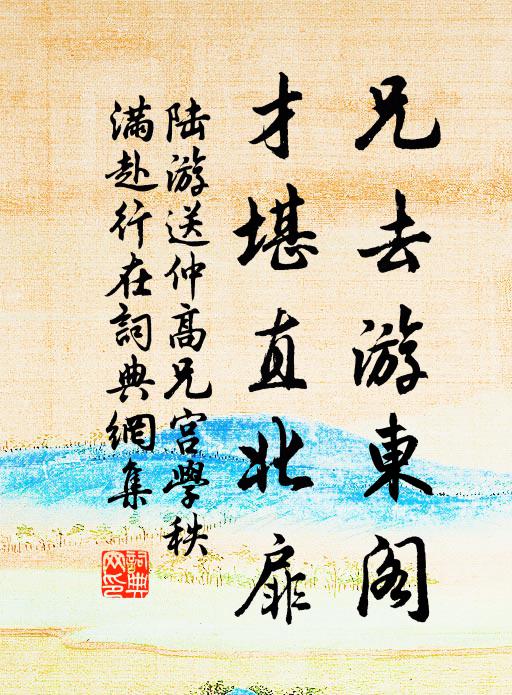 兄去游東阁
才堪直北扉
陆游送仲高兄宫學秩
满赴行在詞典網集
詞典网印